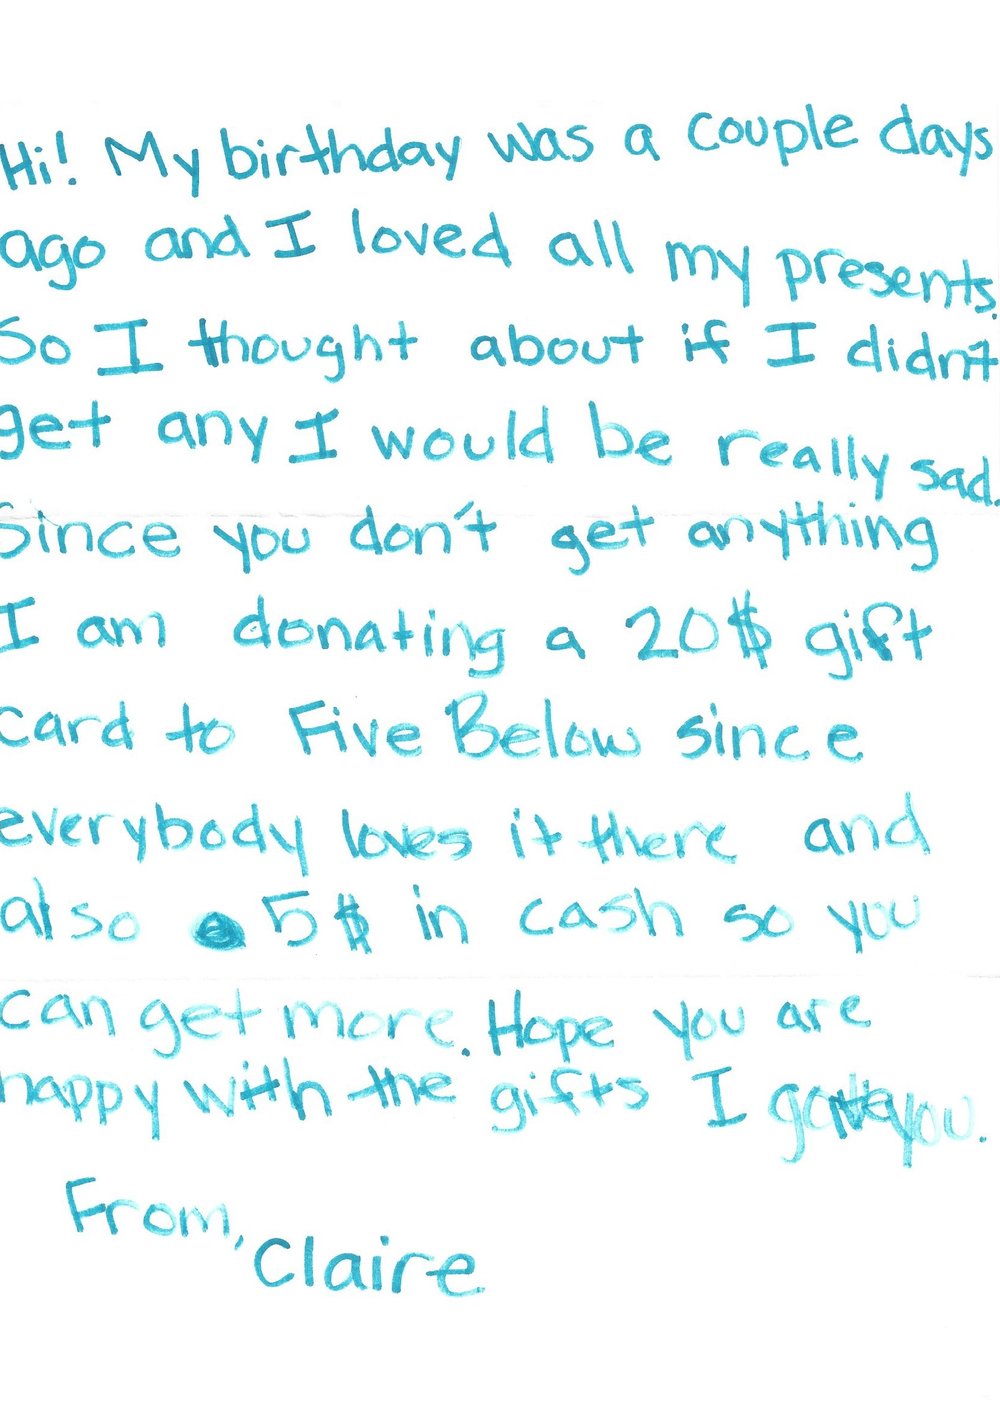 Hi! My birthday was a couple days
ago and I loved all my presents.
So I thought about if I didn't
get any I would be really sad.
Since you don't get anything
I am donating a 20$ gift
card to Five Below since
everybody loves it there and
also 5$ in cash so you
can get more. Hope you are
happy with the gifts I you.
From,
Claire